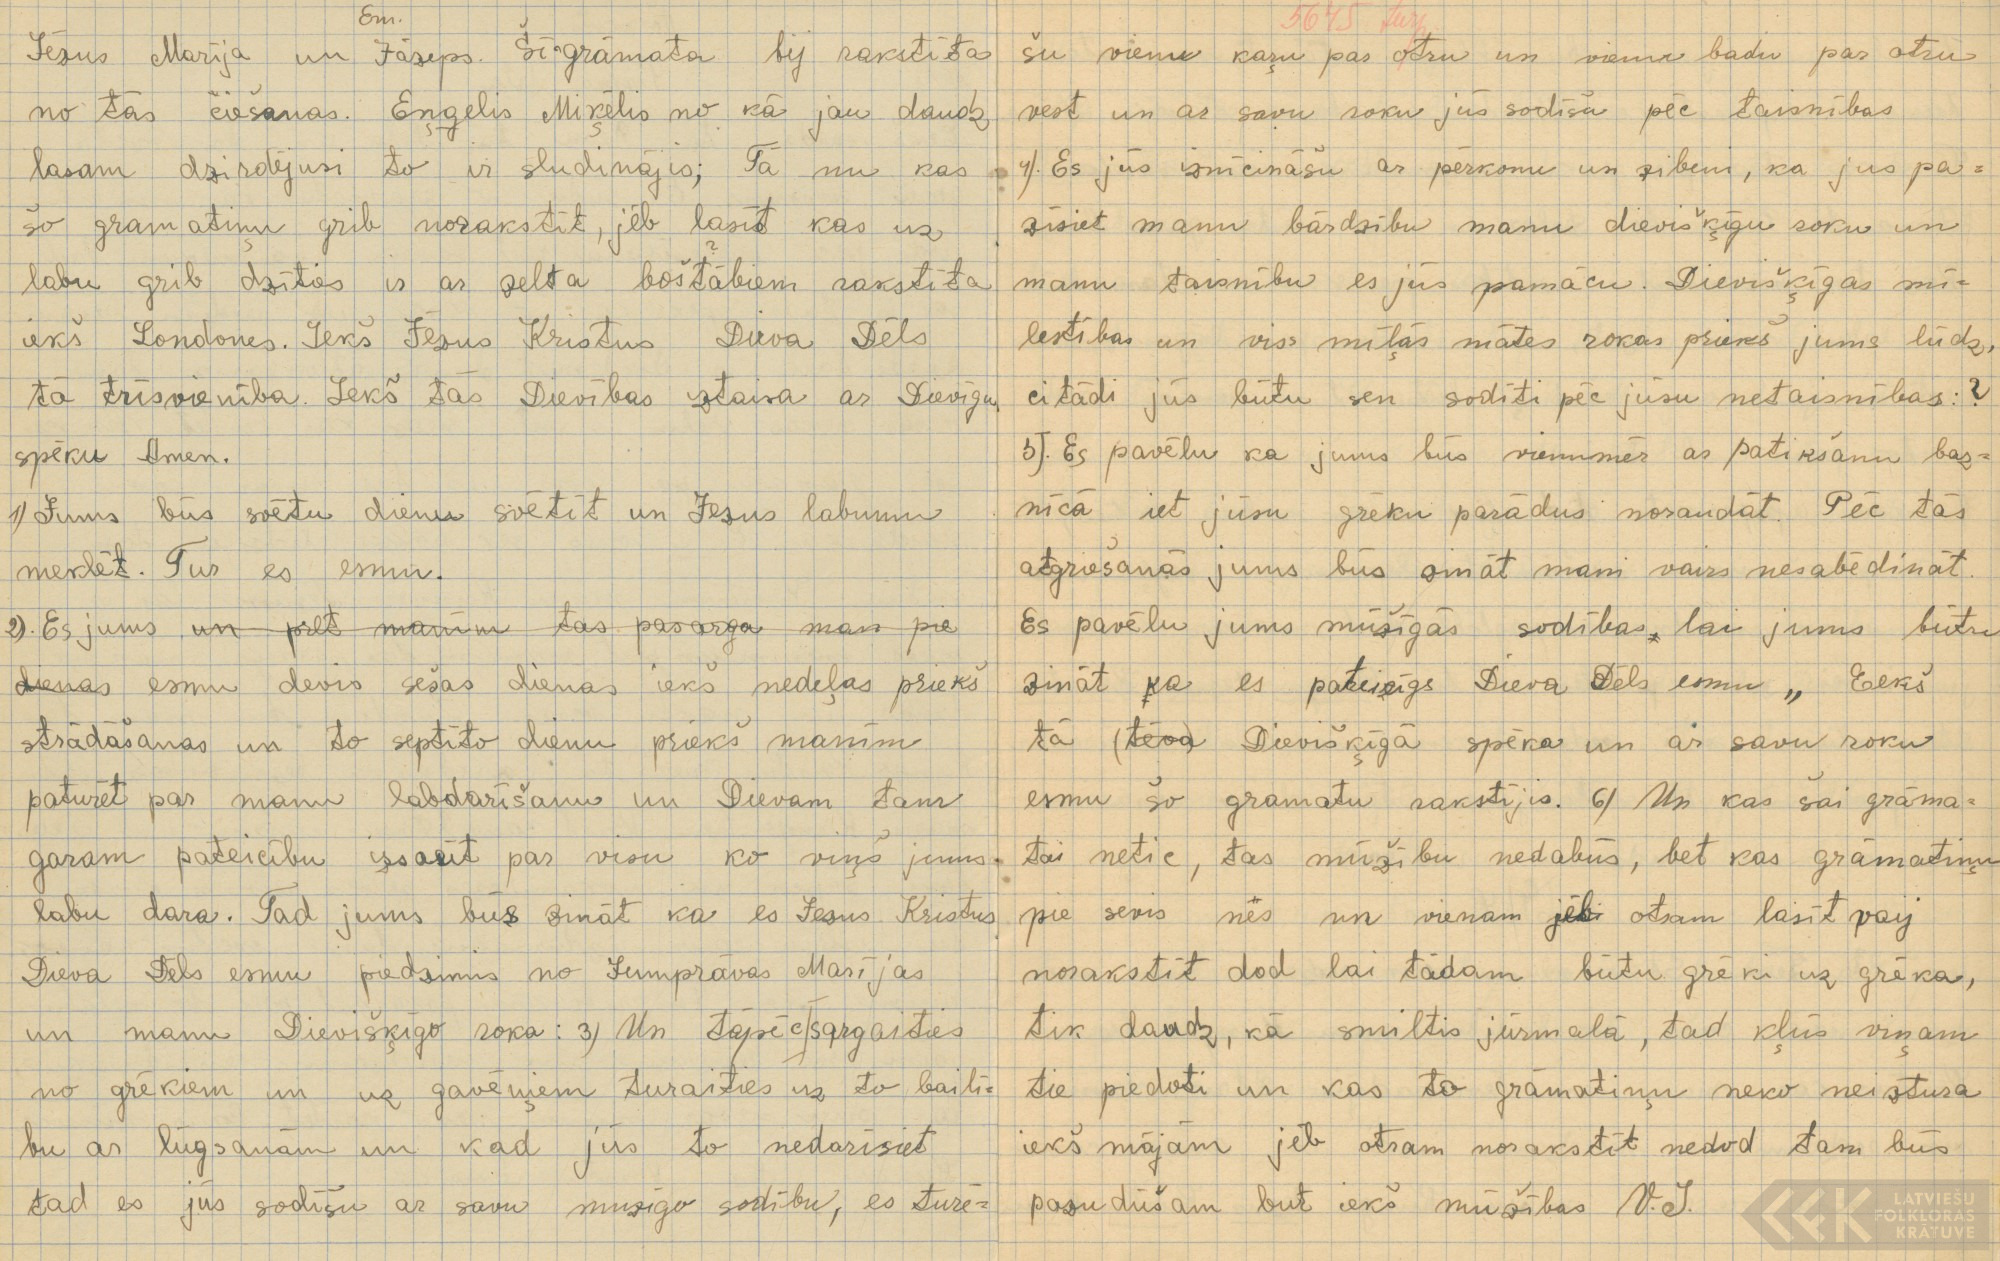 Em.
Jēzus Marija un Jāzeps. Šī grāmata bij rakstīta
no tās ciešanas. Eņģelis Miķēlis no kā jau daudz
lasam dzirdējusi to ir sludinājis; Tā nu kas
šo gramatiņu grib norakstīt, jēb lasīt kas uz
labu grib dzīties ir ar zelta boštābiem rakstīta
iekš Londones. Iekš Jēzus Kristus Dieva Dēls
tā trīsvienība. Iekš tās Dievības ztaisa ar Dievīgu
spēku Amen.
1) Jums būs svētu dienu svētīt un Jezus labumu
meklēt. Tur es esmu.
2). Es jums un pret manim tas pasarga man pie
dienas esmu devis sešas dienas iekš nedeļas priekš
strādāšanas un to septīto dienu priekš manīm
paturēt par manu labdarīšanu un Dievam tam
garam pateicību izsacīt par visu ko viņš jums
labu dara. Tad jums būs zināt ka es Jezus Kristus
Dieva Dēls esmu piedzimis no Jumprāvas Marījas
un manu Dievišķīgo roka: 3) Un tāpēc sargaities
no grēkiem un uz gavēņiem turaities uz to baili=
bu ar lūgsanām un kad jūs to nedarisiet
tad es jūs sodīšu ar savu muzigo sodību, es turē=
5675
šu vienu kaŗu par otru un vienu badu par otru
vest un ar savu roku jūs sodīšu pēc taisnības
4). Es jūs iznīcināšu ar pērkonu un zibeni, ka jus pa=
zīsiet manu bārdzību manu dievišķīgu roku un
manu taisnību es jūs pamācu. Dievišķīgas mī=
lestības un viss mīļās mātes rokas priekš jums lūdz,
citādi jūs būtu sen sodīti pēc jūsu netaisnības:?
5). Es pavēlu ka jums būs vienumēr ar patikšanu baz=
nīcā iet jūsu grēku parādus noraudāt. Pēc tās
atgriešanās jums būs zināt mani vairs nesabēdināt.
Es pavēlu jums mūžīgās sodības, lai jums būtu
zināt ka es pateizīgs Dieva Dēls esmu „ Eekš
tā (tēva) Dievišķīgā spēka un ar savu roku
esmu šo gramatu rakstījis. 6) Un kas šai grāma=
tai netic, tas mūžību nedabūs, bet kas grāmatiņu
pie sevis nēs un vienam jēb otram lasīt vaij
norakstīt dod lai tādam būtu grēki uz grēka,
tik daudz, kā smiltis jūrmalā, tad kļūs viņam
tie piedoti un kas to grāmatiņu neko neiztura
iekš mājām jēb otram norakstīt nedod tam būs
pazudušam but iekš mūžības V. J.
LATVIEŠU
FOLKLORAS
KRĀTUVE